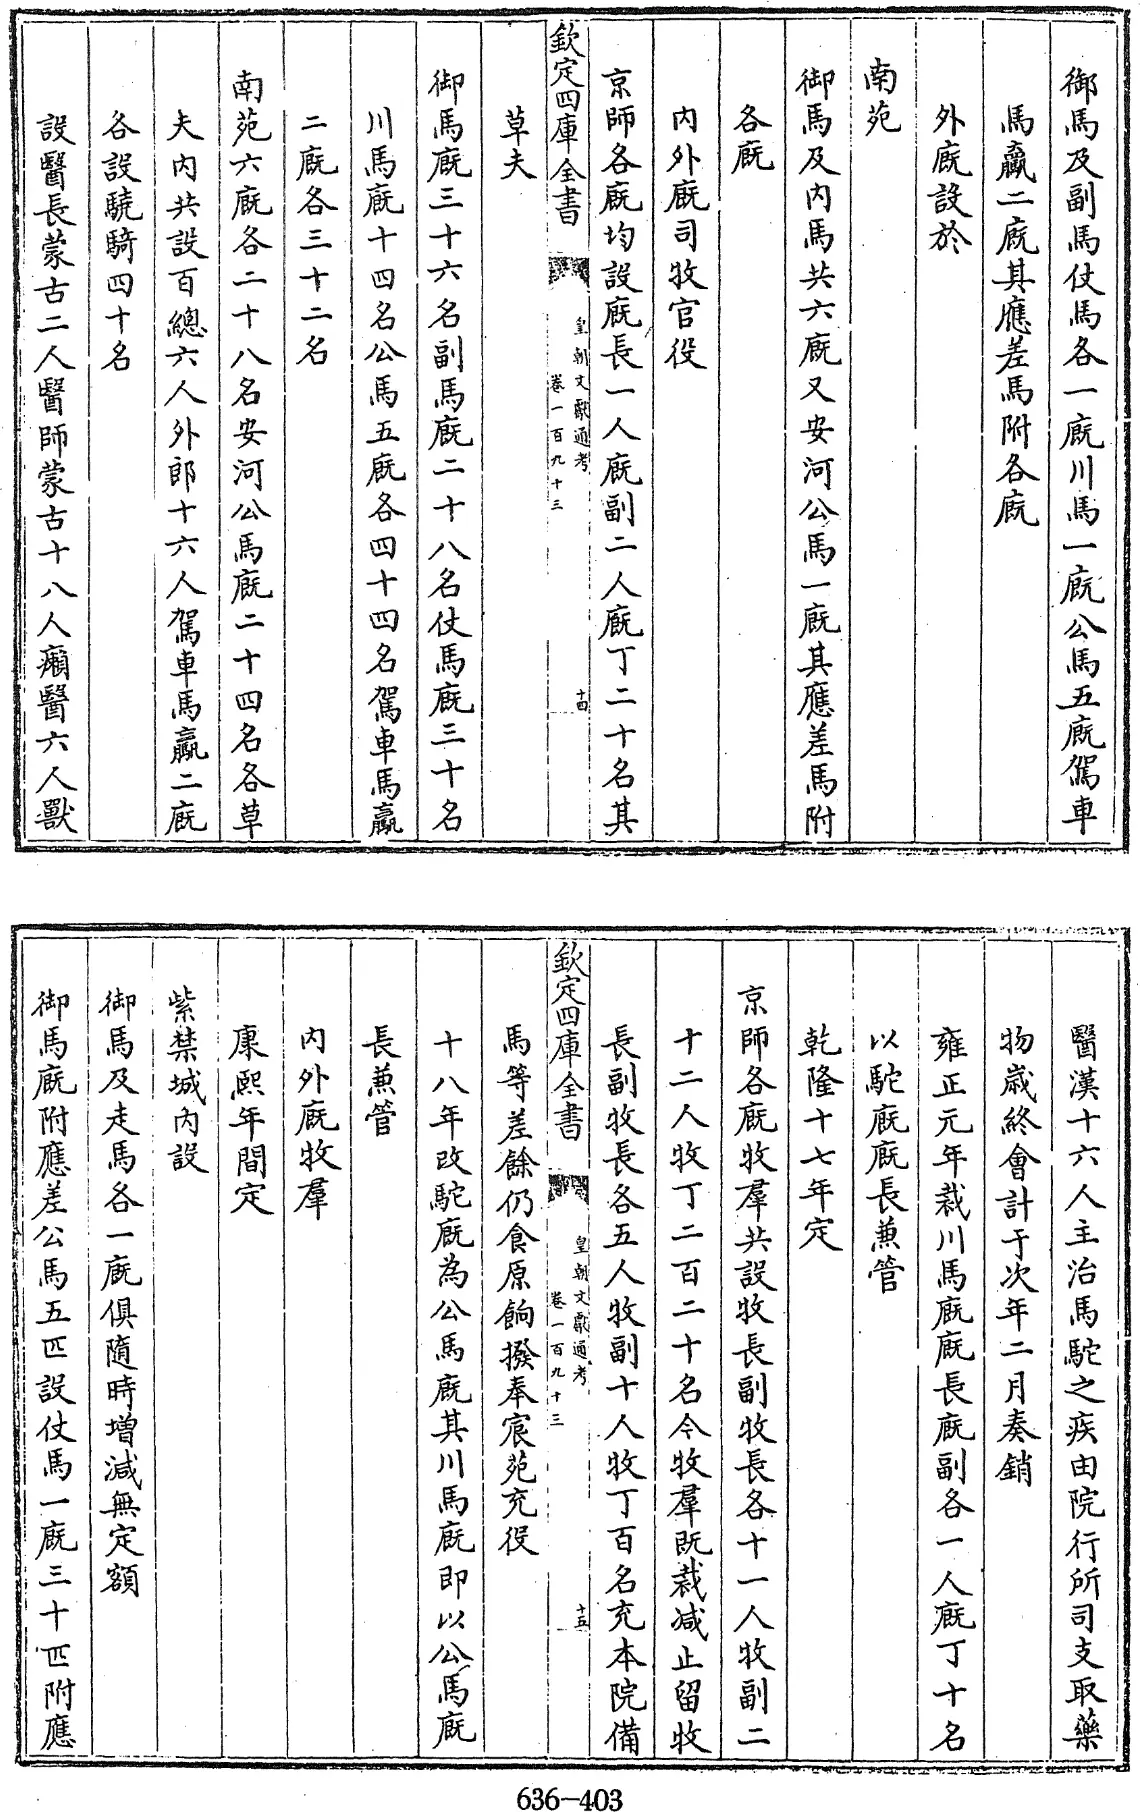 御馬及副馬仗馬各一廐川馬一廐公馬五廐駕車
馬驘二廐其應差馬附各廐
外廐設於
南苑
御馬及内馬共六廐又安河公馬一廐其應差馬附
各廐
内外廐司牧官役
京師各廐均設廐長一人廐副二人廐丁二十名其
欽定四庫全書
皇朝文獻通考
卷一百九十三
十四
草夫
御馬廐三十六名副馬廐二十八名仗馬廐三十名
川馬廐十四名公馬五廐各四十四名駕車馬驘
二廐各三十二名
南苑六廐各二十八名安河公馬廐二十四名各草
夫内共設百總六人外郎十六人駕車馬驘二廐
各設驍騎四十名
設醫長蒙古二人醫師蒙古十八人癩醫六人獸
醫漢十六人主治馬駝之疾由院行所司支取藥
物歳終會計于次年二月奏銷
雍正元年裁川馬廐廐長廐副各一人廐丁十名
以駝廐廐長兼管
乾隆十七年定
京師各廐牧羣共設牧長副牧長各十一人牧副二
十二人牧丁二百二十名今牧羣既裁减止留牧
長副牧長各五人牧副十人牧丁百名充本院備
欽定四庫全書
皇朝文獻通考
卷一百九十三
十五
馬等差餘仍食原餉撥奉宸苑充役
十八年改駝廐為公馬廐其川馬廐即以公馬廐
長兼管
内外廐牧羣
康熙年間定
紫禁城内設
御馬及走馬各一廐俱隨時增減無定額
御馬廐附應差公馬五匹設仗馬一廐三十匹附應
636-403